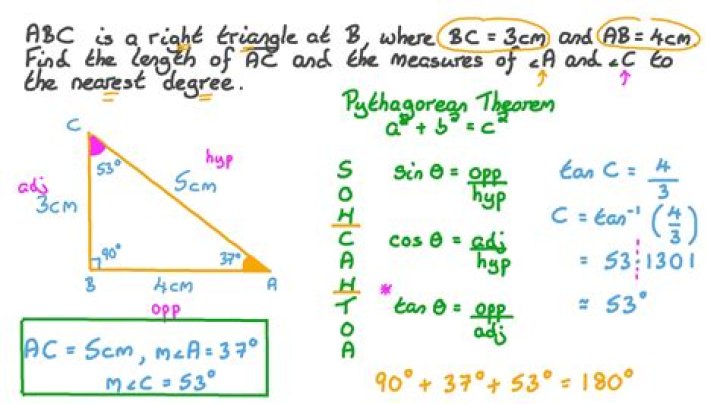 ABC is a right triangle at B, where BC = 3cm and AB = 4cm.
Find the length of AC and the measures of ∠A and ∠C to
the nearest degree.
Pythagorean Theorem
a² + b² = c²
C
53°
hyp
5cm
adj
3cm
90°
37°
B
4cm
A
opp
S
O
H
C
A
H
T
O
A
sin θ = opp
hyp
cos θ = adj
hyp
* tan θ = opp
adj
tan C = 4
3
C = tan⁻¹ (4/3)
= 53.1301
≈ 53°
AC = 5cm, m∠A = 37°
m∠C = 53°
90° + 37° + 53° = 180°